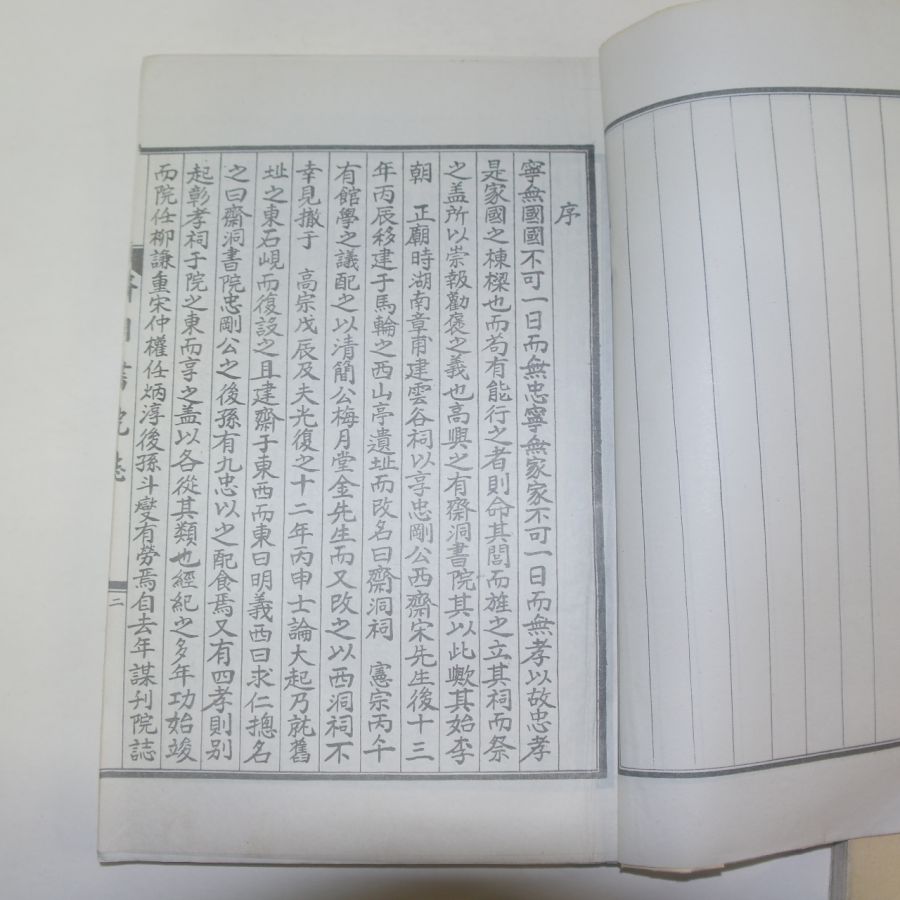 序
寧無國國不可一日而無忠寧無家家不可一日而無孝以故忠孝
是家國之棟樑也而苟有能行之者則命其閭而旌之立其祠而祭
之盖所以崇報勸褒之義也高興之有齋洞書院其以此歟其始李
朝 正廟時湖南章甫建雲谷祠以享忠剛公西齋宋先生後十三
年丙辰移建于馬輪之西山亭遺址而改名曰齋洞祠 憲宗丙午
有館學之議配之以清簡公梅月堂金先生而又改之以西洞祠不
幸見撤于 高宗戊辰及夫光復之十二年丙申士論大起乃就舊
址之東石峴而復設之且建齋于東西而東曰明義西曰求仁摠名
之曰齋洞書院忠剛公之後孫有九忠以之配食焉又有四孝則别
起彰孝祠于院之東而享之盖以各從其類也經紀之多年功始竣
而院任柳謙重宋仲權任炳淳後孫斗燮有勞焉自去年謀刊院誌
二